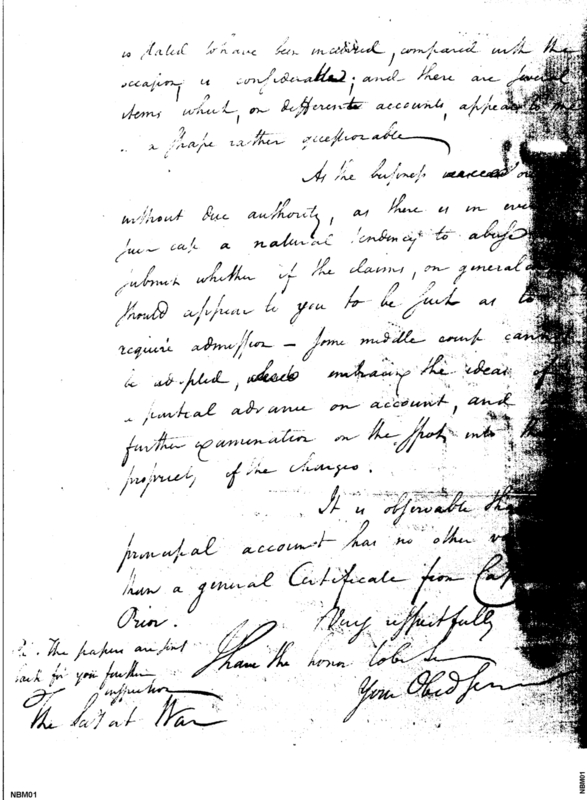 is stated to have been incurred, compared with the
occasion, is considerable; and there are several
items which, on different accounts, appear to me
a shape rather questionable
As the business was
without due authority, as there is in
such case a natural tendency to abuse
submit whether if the claims, on general
should appear to you to be such as to
require admission – some middle course cannot
be adopted, embracing the ideas of
a partial advance on account, and
further examination on the spot, into the
propriety of the charges.
It is observable that
principal account has no other
than a general Certificate from Cap
Prior.
Very respectfully
I have the honor to be Sir
Your Obed Ser
The papers are sent
back for your further
inspection
The Sec'y at War
NBM01
NBM01